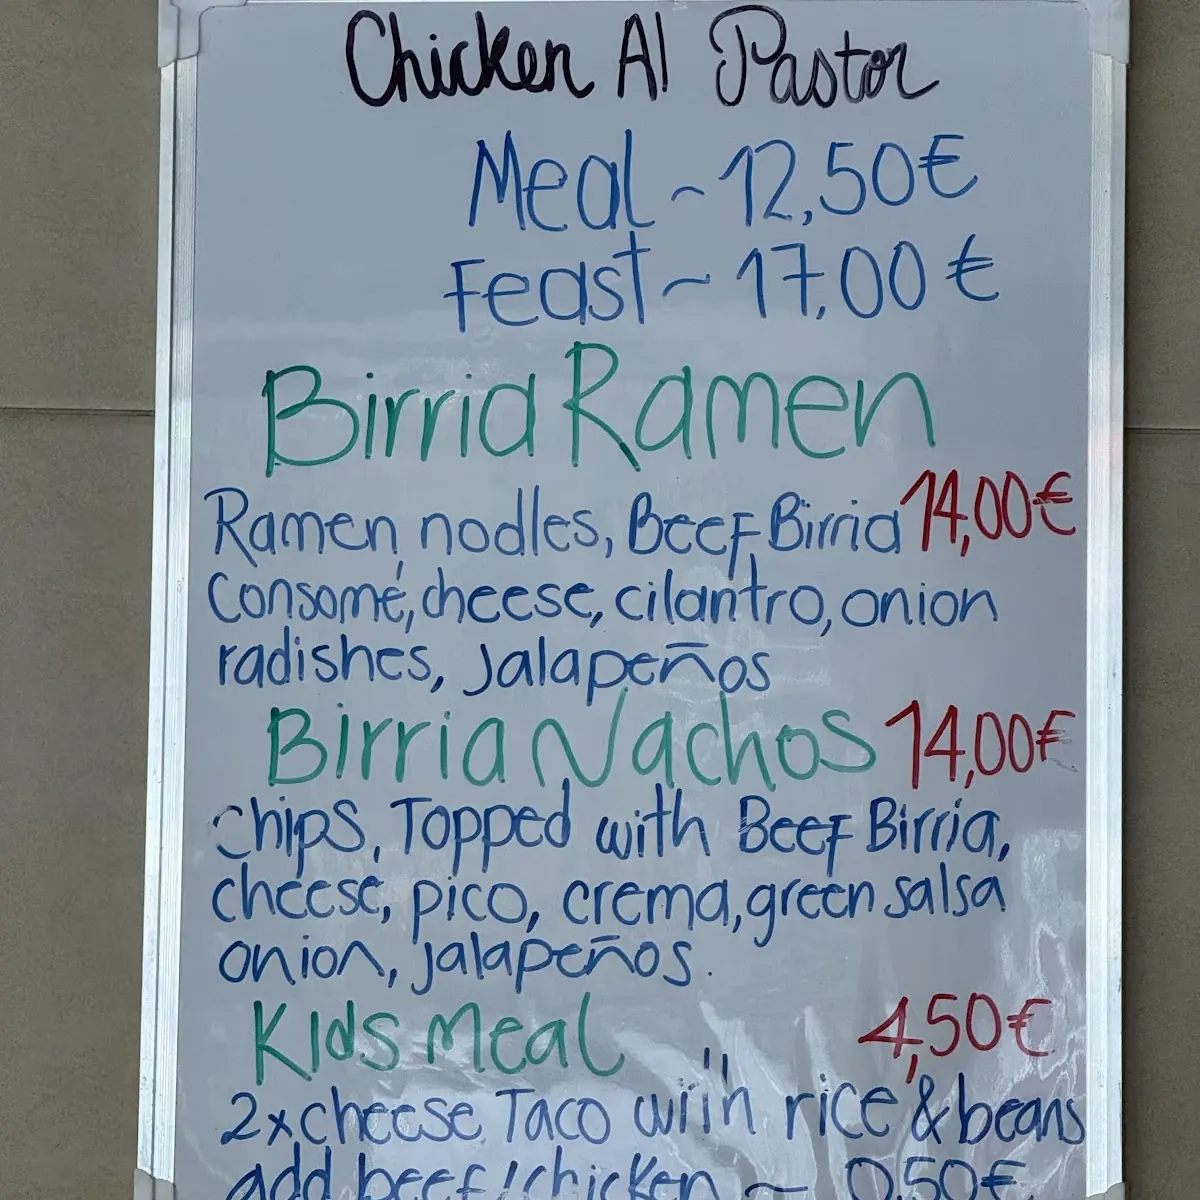 Chicken Al Pastor
Meal ~ 12,50€
Feast ~ 17,00€
Birria Ramen
Ramen nodles, Beef Birria 14,00€
Consomé, cheese, cilantro, onion
radishes, Jalapeños
Birria Nachos 14,00€
Chips, Topped with Beef Birria,
cheese, pico, crema, green salsa
onion, jalapeños.
Kids Meal 4,50€
2x cheese Taco with rice & beans
add beef/chicken ~ 0,50€